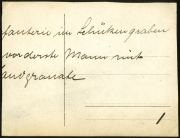 fanterie im Schützengraben
vorderste Mann mit
andgranate
1